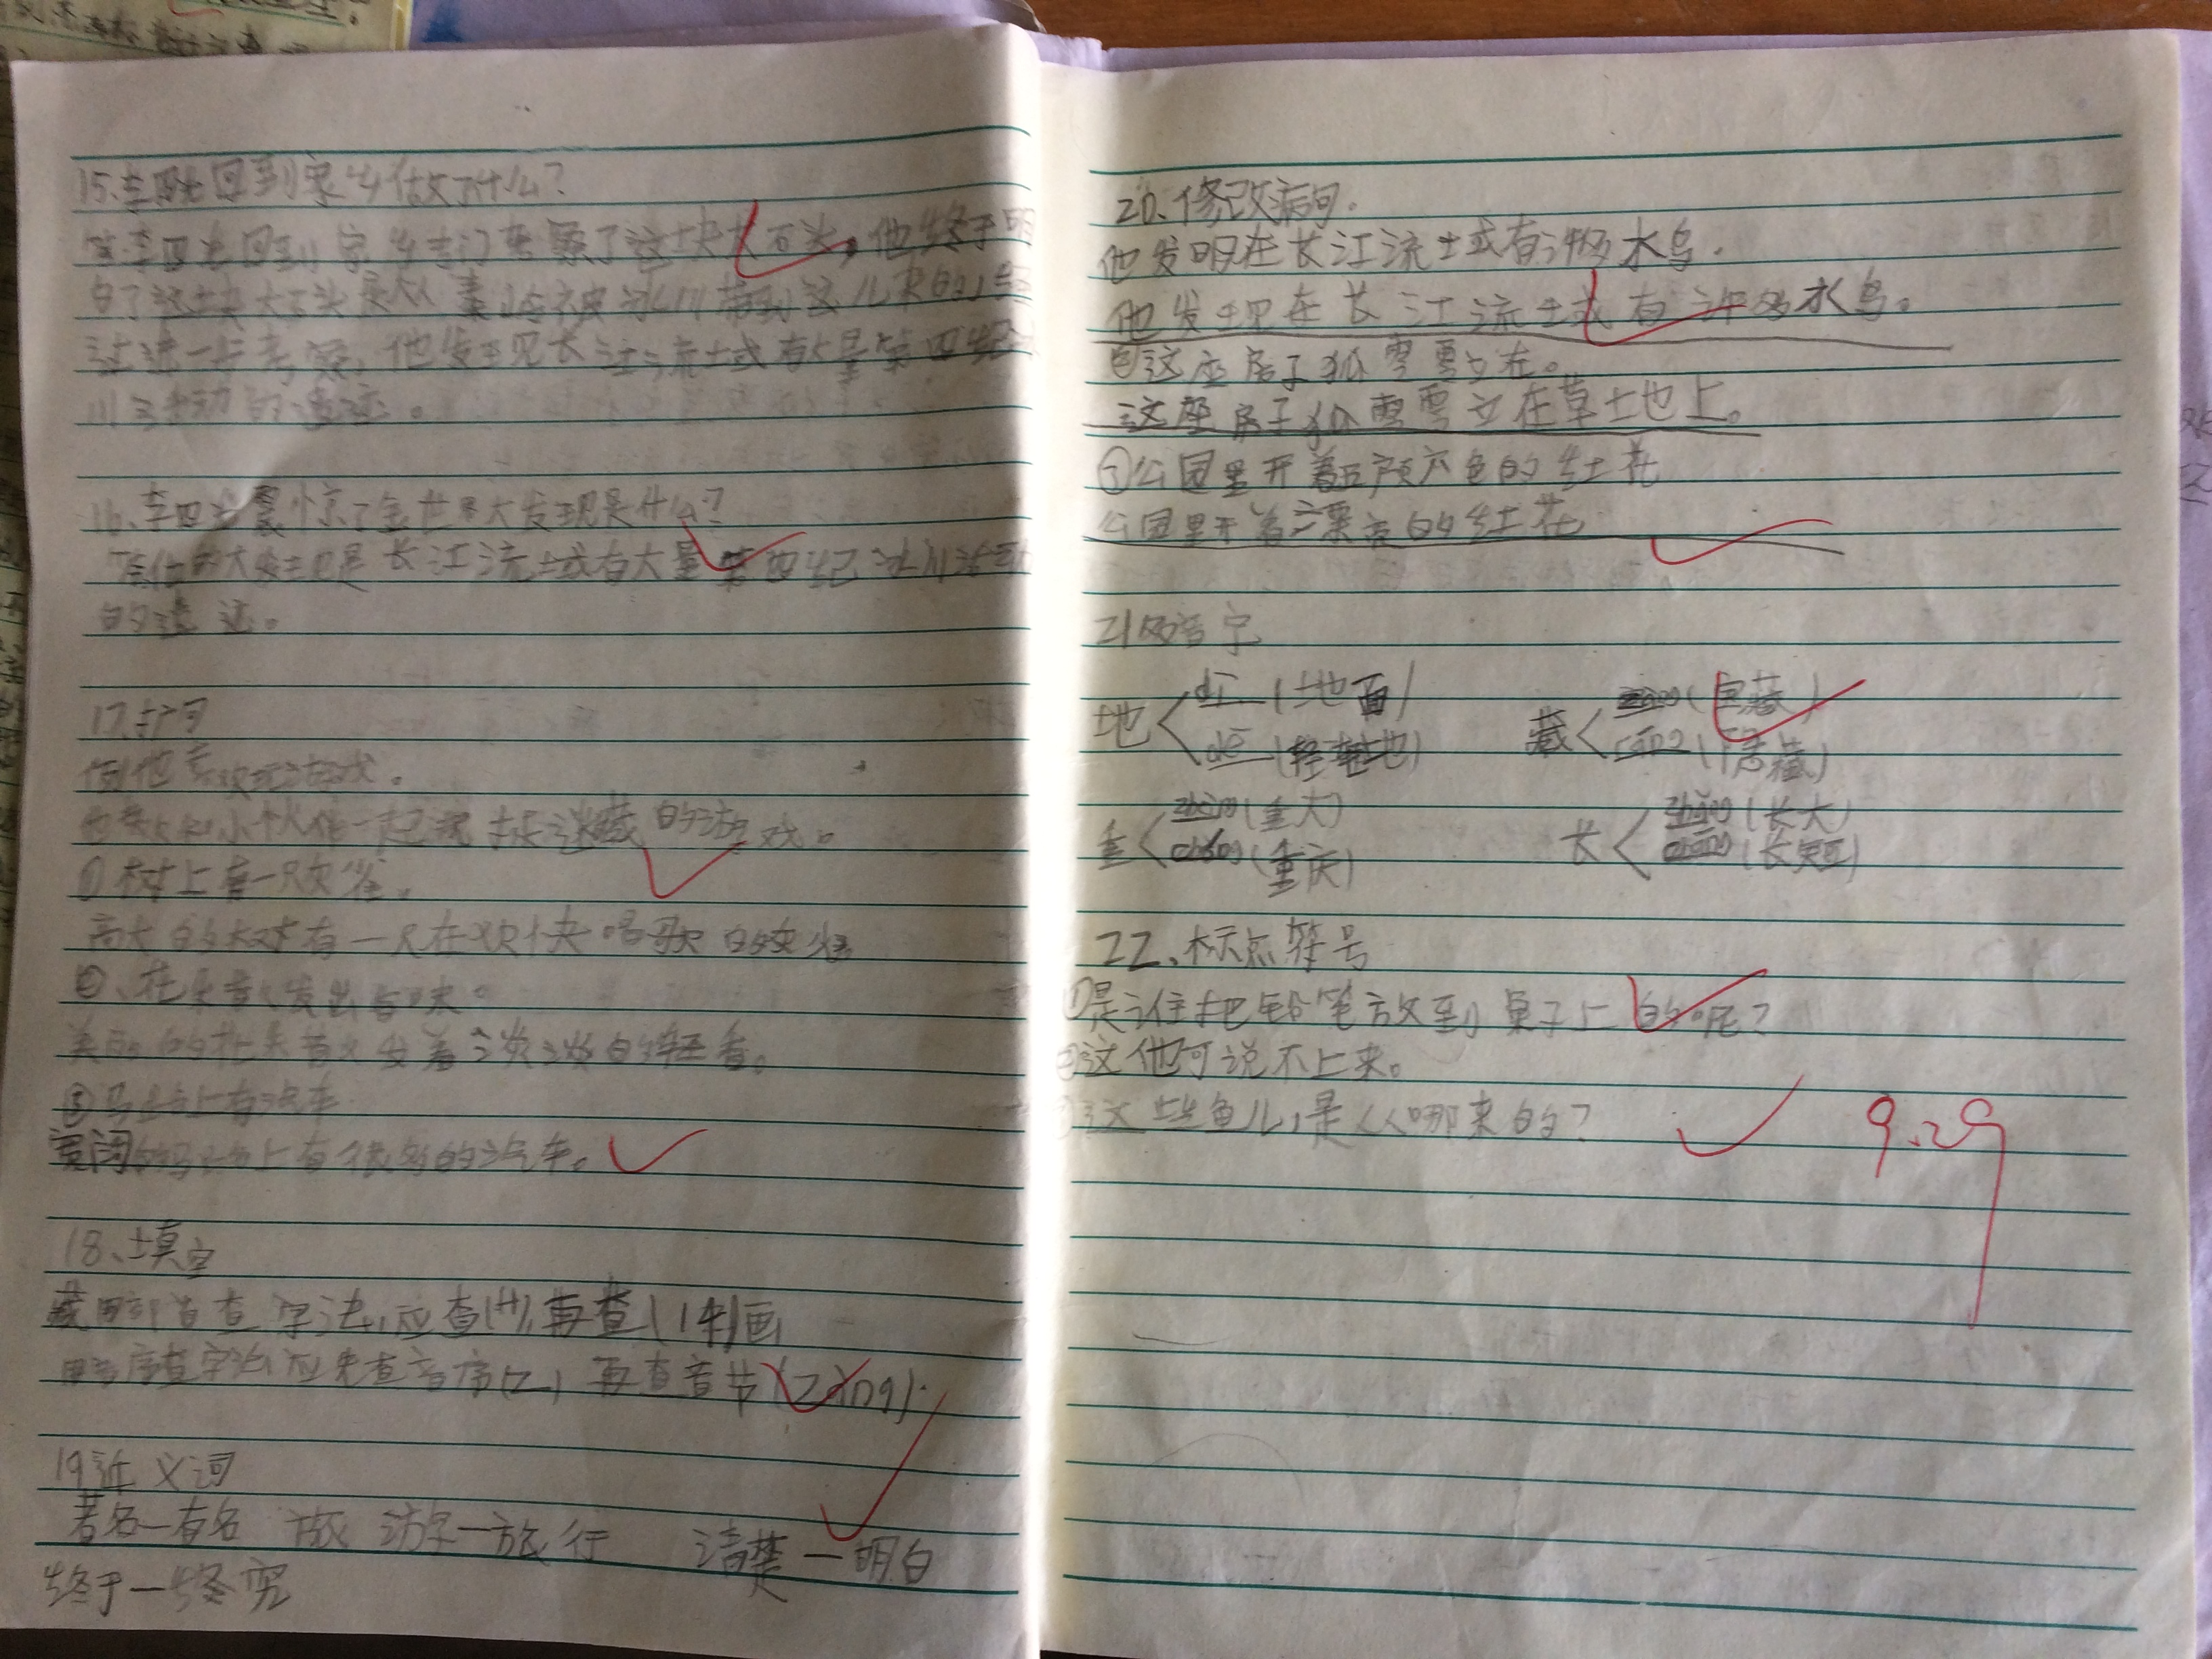 15.李四光回到家乡做了什么?
答:李四光回到家乡专门考察了这块大石头,他终于明
白了这块大石头是从秦岭被冰川带到这儿来的,经
过进一步考察,他发现长江流域有大量第四纪冰
川活动的遗迹。
16、李四光震惊了全世界大发现是什么?
答他的大发现是长江流域有大量第四纪冰川活动
的遗迹。
17.扩句
例他喜欢玩游戏。
他喜欢和小伙伴一起玩捉迷藏的游戏。
①树上有一只黄雀。
高大的树有一只在欢快唱歌的黄雀
②、花朵发出香味。
美丽的花朵散发着淡淡的轻香。
③马路上有汽车
宽阔的马路上有很多的汽车。
18、填空
藏用部首查字法,应查(艹),再查(14)画
用音序查字法应先查音序(Z),再查音节(zàng).
19近义词
著名—有名 访学—旅行 清楚—明白
终于—终究
20、修改病句.
他发明在长江流域有许多水鸟.
他发现在长江流域有许多水鸟。
②这座房子孤零零立在。
这座房子孤零零立在草地上。
③公园里开着五颜六色的红花
公园里开着漂亮的红花
21多音字
地 dì (地面) 藏 (宝藏)
de (轻轻地) cáng (
重 zhòng (重大) 长 zhǎng (长大)
chóng (重庆) cháng (长短)
22、标点符号
①是谁把铅笔放到桌子上的呢?
②这他可说不上来。
这些鱼儿,是从哪来的?
9.29